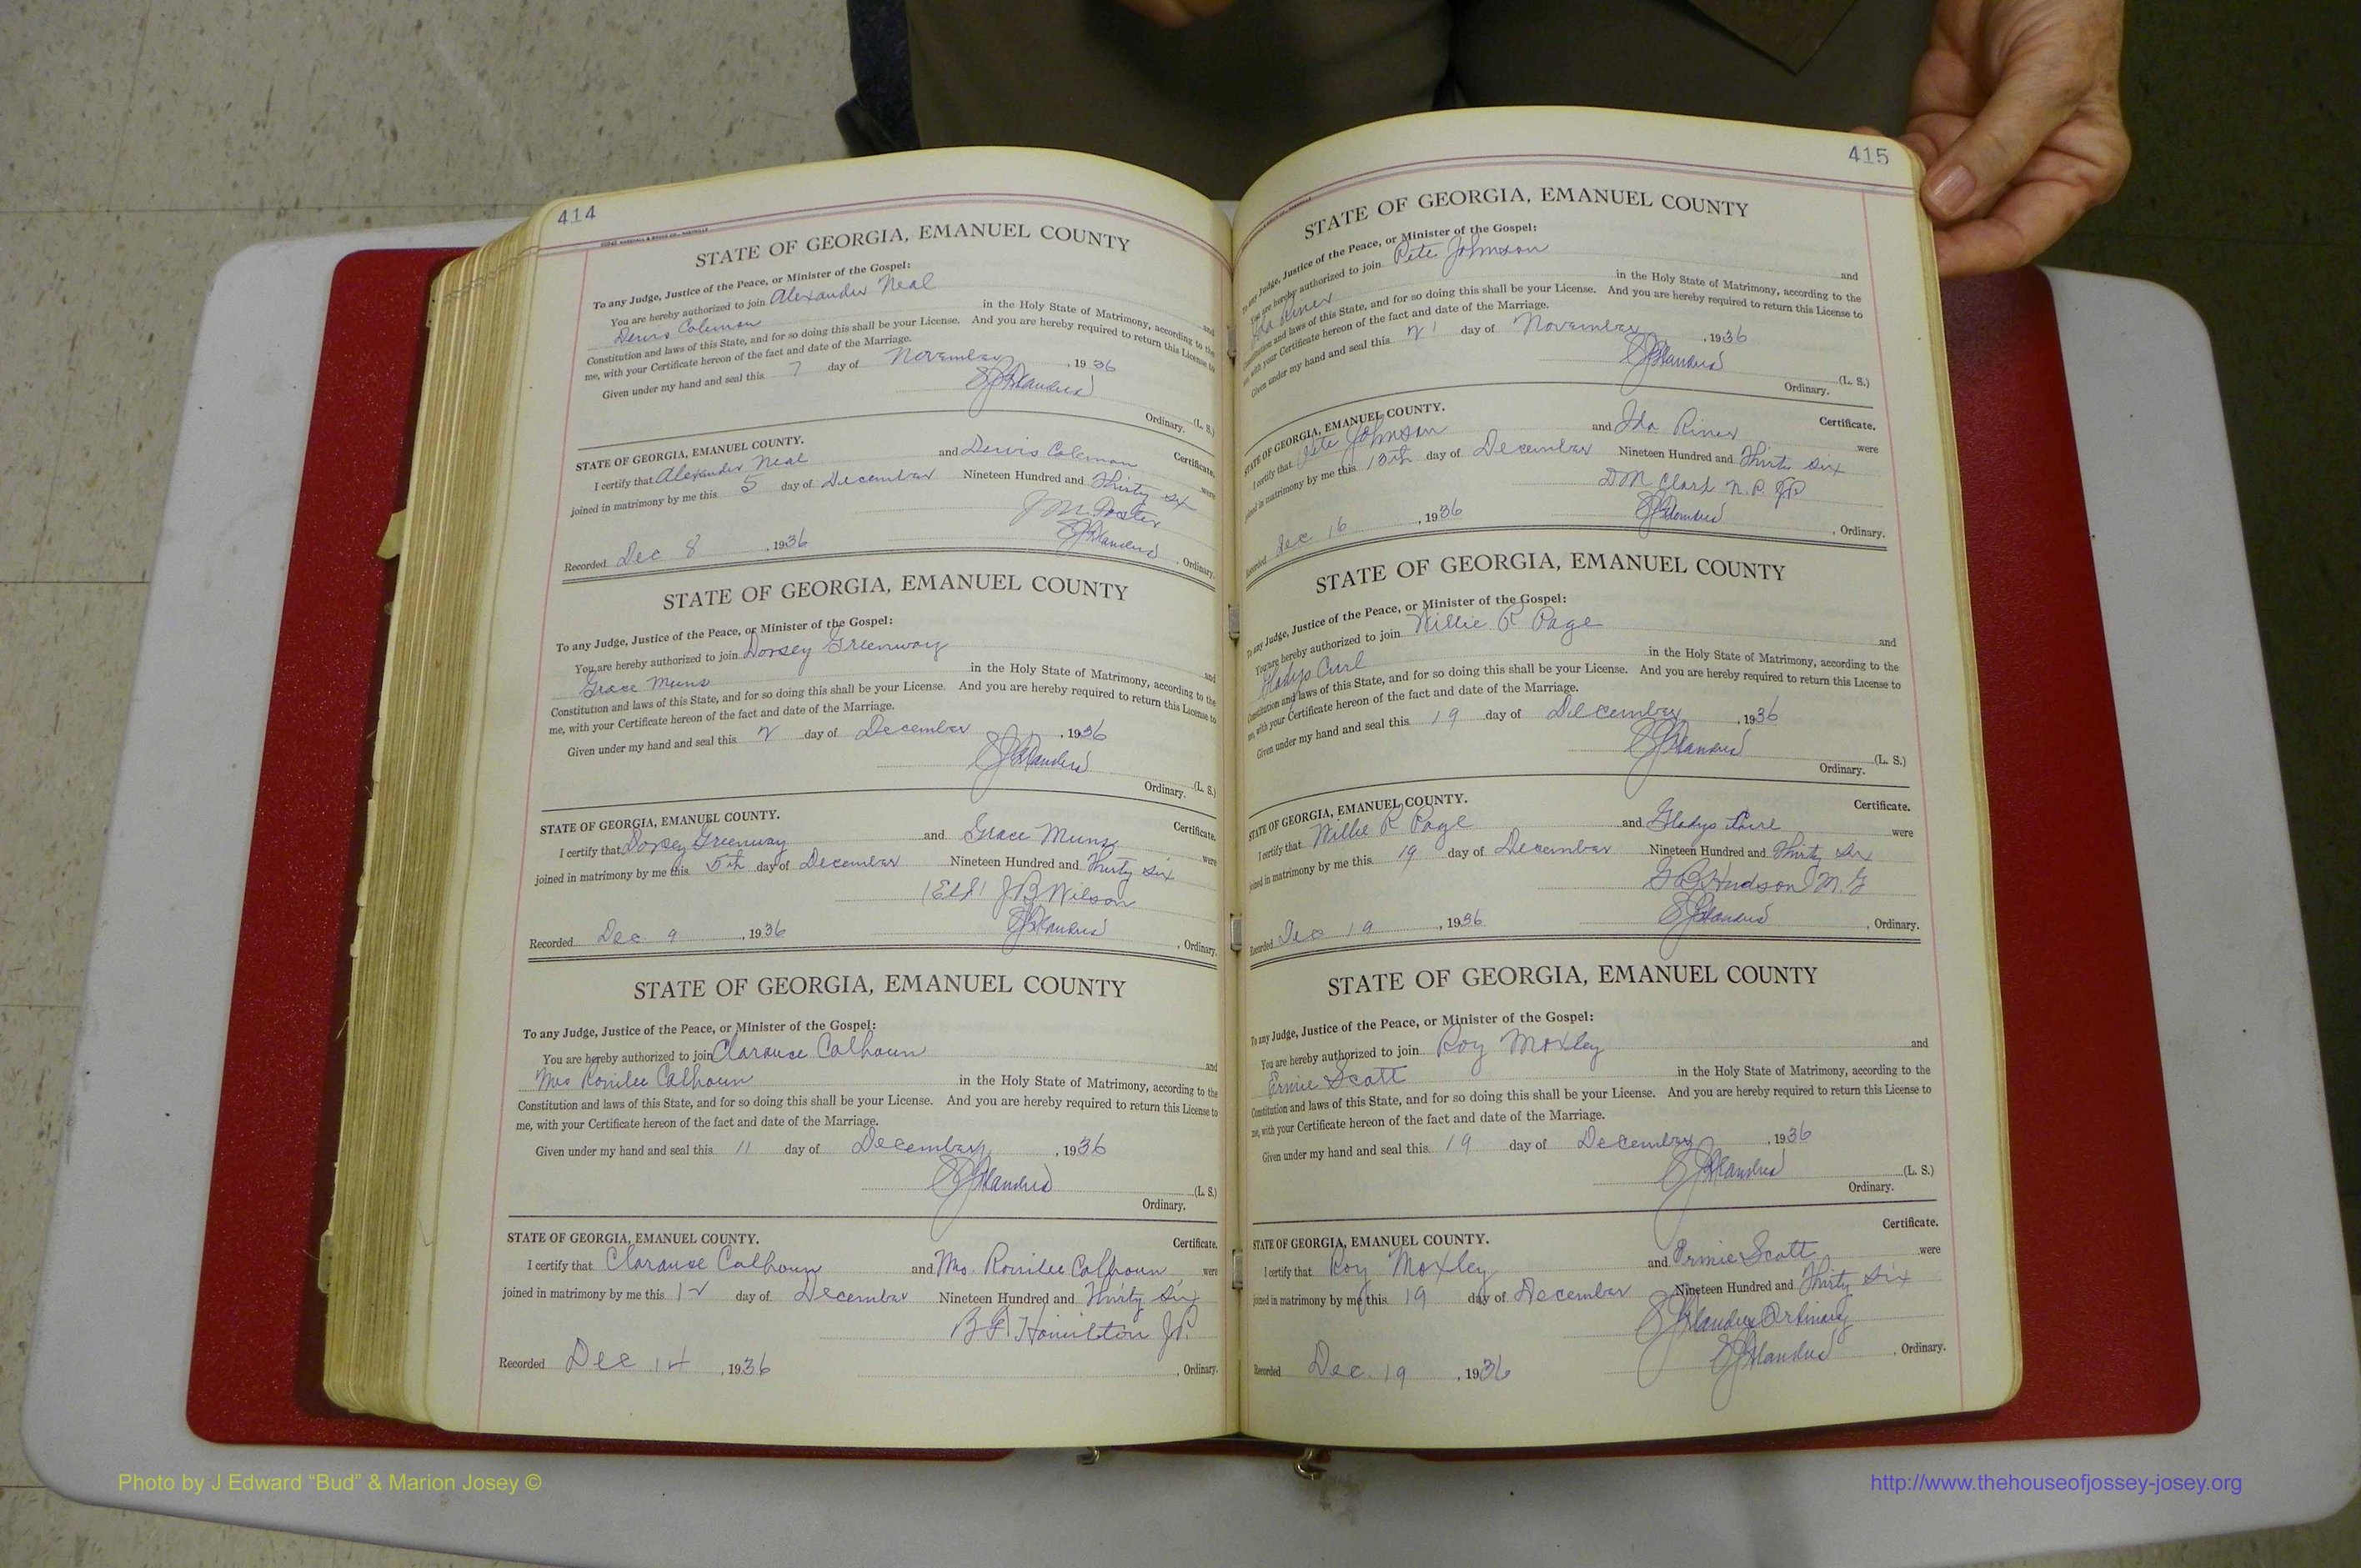 414
STATE OF GEORGIA, EMANUEL COUNTY
To any Judge, Justice of the Peace, or Minister of the Gospel:
You are hereby authorized to join Alexander Neal and
Coleman in the Holy State of Matrimony, according to the
Constitution and laws of this State, and for so doing this shall be your License. And you are hereby required to return this License to
me, with your Certificate hereon of the fact and date of the Marriage.
Given under my hand and seal this 7 day of November, 1936
(L. S.)
Ordinary.
STATE OF GEORGIA, EMANUEL COUNTY. Certificate.
I certify that Alexander Neal and Coleman were
joined in matrimony by me this 5 day of December Nineteen Hundred and Thirty Six
J M
Recorded Dec 8, 1936 , Ordinary.
STATE OF GEORGIA, EMANUEL COUNTY
To any Judge, Justice of the Peace, or Minister of the Gospel:
You are hereby authorized to join Dorsey Greenway and
Grace Muns in the Holy State of Matrimony, according to the
Constitution and laws of this State, and for so doing this shall be your License. And you are hereby required to return this License to
me, with your Certificate hereon of the fact and date of the Marriage.
Given under my hand and seal this 2 day of December, 1936
(L. S.)
Ordinary.
STATE OF GEORGIA, EMANUEL COUNTY. Certificate.
I certify that Dorsey Greenway and Grace Muns were
joined in matrimony by me this 5th day of December Nineteen Hundred and Thirty Six
J B Wilson
Recorded Dec 9, 1936 , Ordinary.
STATE OF GEORGIA, EMANUEL COUNTY
To any Judge, Justice of the Peace, or Minister of the Gospel:
You are hereby authorized to join Clarance Calhoun and
Mrs Calhoun in the Holy State of Matrimony, according to the
Constitution and laws of this State, and for so doing this shall be your License. And you are hereby required to return this License to
me, with your Certificate hereon of the fact and date of the Marriage.
Given under my hand and seal this 11 day of December, 1936
(L. S.)
Ordinary.
STATE OF GEORGIA, EMANUEL COUNTY. Certificate.
I certify that Clarance Calhoun and Mrs. Calhoun were
joined in matrimony by me this 12 day of December Nineteen Hundred and Thirty Six
Hamilton J.P.
Recorded Dec 14, 1936 , Ordinary.
415
STATE OF GEORGIA, EMANUEL COUNTY
To any Judge, Justice of the Peace, or Minister of the Gospel:
You are hereby authorized to join Pete Johnson and
Ida Riner in the Holy State of Matrimony, according to the
Constitution and laws of this State, and for so doing this shall be your License. And you are hereby required to return this License to
me, with your Certificate hereon of the fact and date of the Marriage.
Given under my hand and seal this 21 day of November, 1936
(L. S.)
Ordinary.
STATE OF GEORGIA, EMANUEL COUNTY. Certificate.
I certify that Pete Johnson and Ida Riner were
joined in matrimony by me this 13th day of December Nineteen Hundred and Thirty Six
D M Clark N. P. JP
Recorded Dec 16, 1936 , Ordinary.
STATE OF GEORGIA, EMANUEL COUNTY
To any Judge, Justice of the Peace, or Minister of the Gospel:
You are hereby authorized to join Willie R Page and
Gladys Curl in the Holy State of Matrimony, according to the
Constitution and laws of this State, and for so doing this shall be your License. And you are hereby required to return this License to
me, with your Certificate hereon of the fact and date of the Marriage.
Given under my hand and seal this 19 day of December, 1936
(L. S.)
Ordinary.
STATE OF GEORGIA, EMANUEL COUNTY. Certificate.
I certify that Willie R Page and Gladys Curl were
joined in matrimony by me this 19 day of December Nineteen Hundred and Thirty Six
Hudson M. G
Recorded Dec 19, 1936 , Ordinary.
STATE OF GEORGIA, EMANUEL COUNTY
To any Judge, Justice of the Peace, or Minister of the Gospel:
You are hereby authorized to join Roy Moxley and
Ermie Scott in the Holy State of Matrimony, according to the
Constitution and laws of this State, and for so doing this shall be your License. And you are hereby required to return this License to
me, with your Certificate hereon of the fact and date of the Marriage.
Given under my hand and seal this 19 day of December, 1936
(L. S.)
Ordinary.
STATE OF GEORGIA, EMANUEL COUNTY. Certificate.
I certify that Roy Moxley and Ermie Scott were
joined in matrimony by me this 19 day of December Nineteen Hundred and Thirty Six
Ordinary
Recorded Dec. 19, 1936 , Ordinary.
Photo by J Edward “Bud” & Marion Josey ©
http://www.thehouseofjossey-josey.org